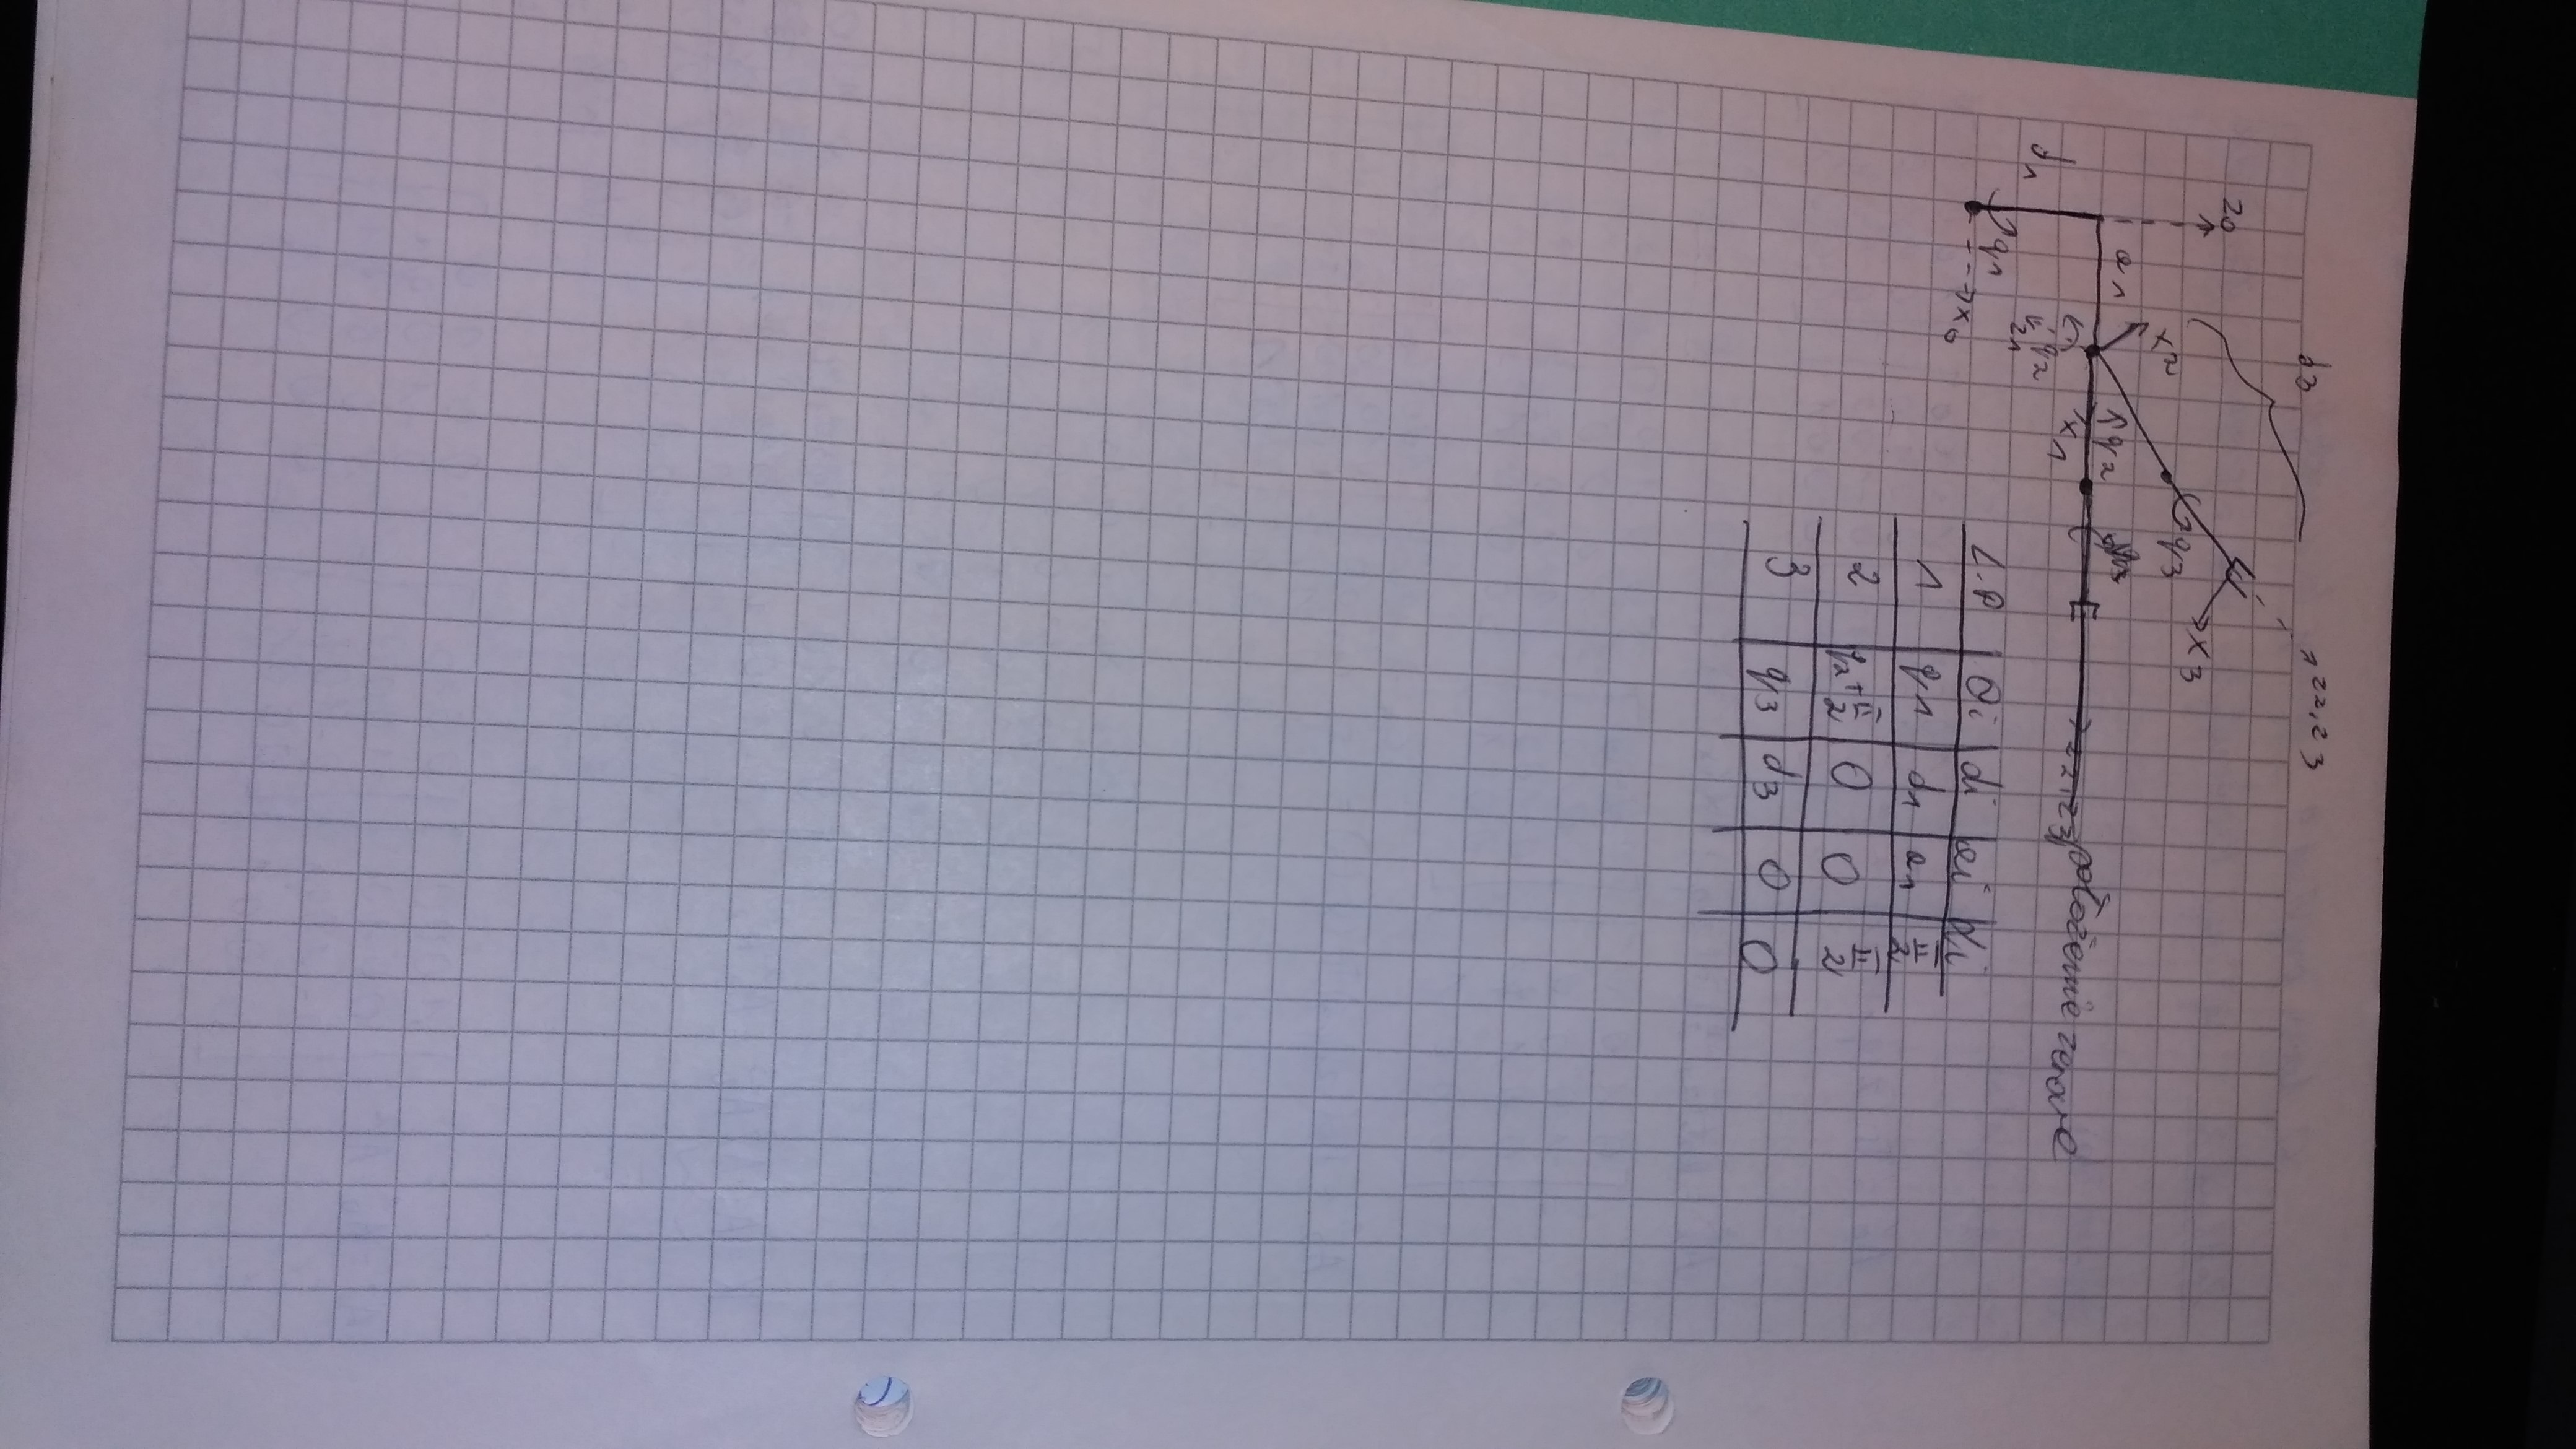 d3
z2,z3
z0
x3
x2
q3
a1
q2
x1
z2,z3 położenie zerowe
d1
q2
z1
q1
x0
L.P Θi di ai αi
1 q1 d1 a1 π/2
2 q2+π/2 0 0 π/2
3 q3 d3 0 0